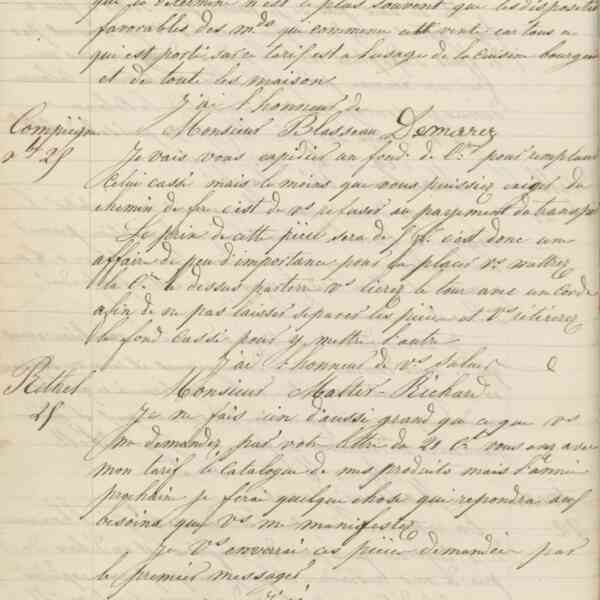 que le détermine n'est le plus souvent que les disposition
favorables des mds qui commence cette vente car tous ce
qui est porté sur ce tarif est a l'usage de la cuisine bourgeoi
et de toute les maisons
J'ai l'honneur de
Compiègne Monsieur Blasseau Demerrez
25 Je vais vous expédier un fond de pour remplacer
celui cassé mais le moins que vous puissiez exiger du
chemin de fer c'est de vs refuser au payement du transpo
Le prix de cette pièce sera de c'est donc une
affaire de peu d'importance pour la placer vs mettrez
la le dessus par terre vs lierez le tour avec un corde
afin de ne pas laisser séparer les pièces et vs retirerez
le fond cassé pour y mettre l'autre
J'ai l'honneur de vs saluer
Rethel Monsieur Malter-Richard
25 Je ne fais rien d'aussi grand que ce que vs
me demandez par votre lettre du 20 Ct vous avez avec
mon tarif le catalogue de mes produits mais l'année
prochain je ferai quelque chose qui repondra aux
besoins que vs me manifestez
Je vs enverrai les pièces demandées par
le premier messager
J'ai